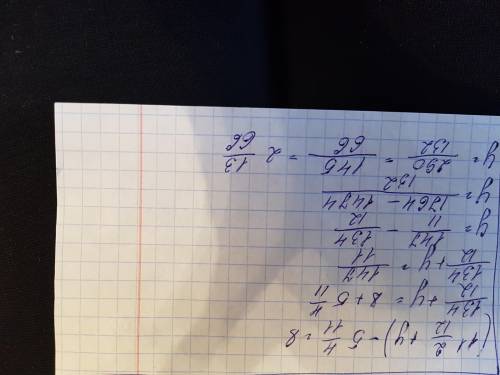 (11 2/12 + y) - 5 4/11 = 8
134/12 + y = 8 + 5 4/11
134/12 + y = 147/11
y = 147/11 - 134/12
y = 1764 - 1474/132
y = 290/132 = 145/66 = 2 13/66